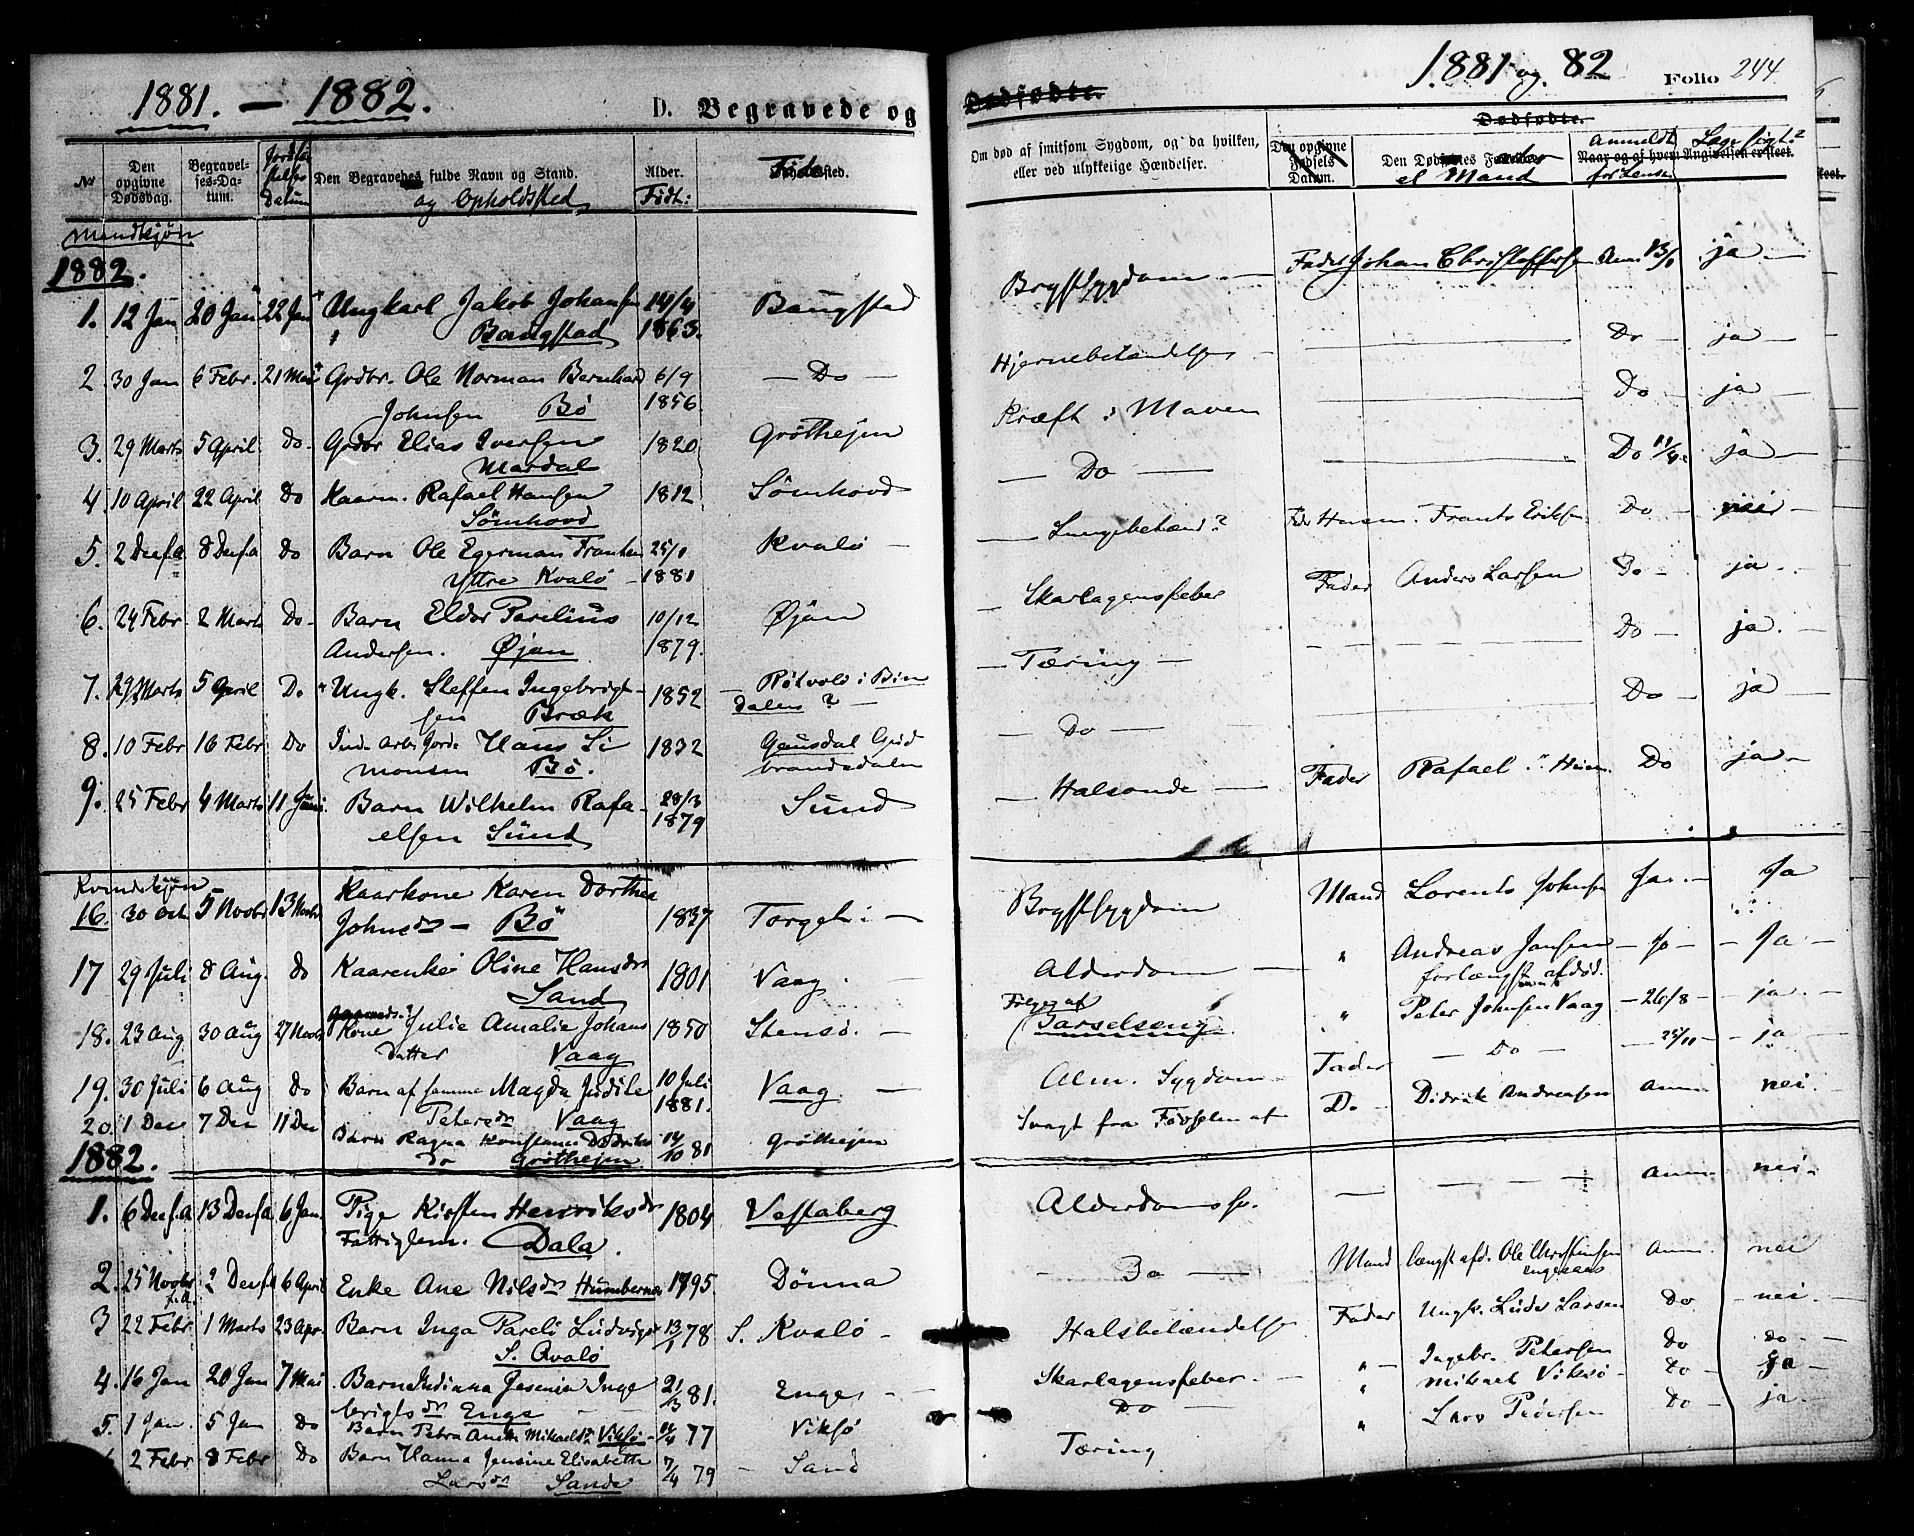 1881. — 1882.
D. Begravede og
№
Den opgivne Dødsdag.
Begravelses-Datum.
Datum
Den Begravedes fulde Navn og Stand.
og Opholdssted
Alder.
Født:
Mandkjøn
1882.
1. 12 Jan 20 Jan 22 Jan Ungkarl Jakob Johansen 14/4 Baugstad
Baugstad 1863.
2. 30 Jan 6 Febr. 21 Mai Gdbr. Ole Norman Bernhard 6/9 — Do —
Johnsen Bö 1856.
3. 29 Marts 5 April Do Gdbr Elias Iversen 1820 Gröthejen
Mardal
4 10 April 22 April Do Kaarm. Rafael Hansen 1812 Sömhovd
Sömhovd
5. 2 Decf.a 8 Decf.a Do Barn Ole Egerman Frantsen 25/1 Kvalö
Yttre Kvalö 1881
6. 24 Febr 2 Marts Do Barn Eldor Parelius 10/12 Øjan
Andersen. Øjan 1879.
7. 29 Marts 5 April Do Ungk. Steffen Ingebrigt- 1852 i Bin
sen Bræk dalen ?
8. 10 Febr 16 Febr Do Hans Si 1832 Gausdal Gud
monsen Bö. brandsdalen
9. 25 Febr 4 Marts 11 Juni Barn Wilhelm Rafa- 28/3 Sund
elsen Sund 1879
Kvindekjøn
16. 30 Oct 5 Novbr 13 Novbr Kaarkone Karen Dorthea
Johnsdr Bö 1837 Torget
17 29 Juli 8 Aug. Do Kaarenke Oline Hansdr 1801 Vaag.
Sand
18. 23 Aug 30 Aug 27 Novbr Kone Julie Amalie Johans 1850 Stensö.
datter Vaag
19. 30 Juli 6 Aug Do Barn af samme Magda Judile 10 Juli Vaag
Petersdr Vaag 1881.
20. 1 Dec 7 Dec 11 Dec Barn Ragna Konstance Didriks 14/10 81 Gröthejen
do Gröthejen
1882.
1. 6 Decf.a 13 Decf.a 6 Jan. Pige Kirsten Henriksdr 1804 Vestaberg
Fattiglem. Dala.
2. 25 Novbr f.a. 2 Decf.a 6 April Enke Ane Nilsdr Humbernes 1795. Dönna
3 22 Febr 1 Marts 23 Apr. Barn Inga Pareli Ludvigsdr 13/1 78 S. Kvalö
S. Qvalö
4. 16 Jan 20 Jan 7 Mai Barn Indianna Jesenja Inge 21/3 81. Enge
brigtsdr Enge
5. 1 Jan. 5 Jan Do Barn Petra Mikaelsdr Viksö 77 Viksö
2 Febr 8 Febr Do Barn Hanna Jensine Elisabeth 7/4 79 Sand
Larsdr Sande
1881 og 82
Folio 244
Dødfødte.
Dødfødte.
Om død af smitsom Sygdom, og da hvilken, eller ved ulykkelige Hændelser.
Den opgivne Fødsels Datum.
Den Dødfødtes
el Mand
Naar og af hvem Angivelsen er sket.
Anmeldt
for Lensm
Brystsygdom — Fader Johan Christoffersen Anm 13/1 ja —
Hjernebetændelse Do ja
Kræft i Maven Do ja
— Do — Do 11/4 ja
Lungebetænd? Frants Eriksen Do nei
Skarlagensfeber Fader Anders Larsen Do ja
Tæring Do ja.
Do Do ja
Halsonde Fader Rafael Do ja
Brystsygdom Mand Lorents Johnsen Ja Ja
Alderdom " Andreas Jansen Ja
forlængst afdød.
Følge af
Barselseng. " Peter Johnsen Vaag 26/8 ja.
Alm. Sygdom Fader — Do — 25/10 ja
Svagt fra Fødselen af Do Didrik Andreasen Anm nei
Alderdomssv. Anm nei
Do Mand længst afd. Ole Christensen Anm. nei
Halsbetændelse Fader Ungk. Lüder Larsen Do nei
Skarlagensfeber " Ingebr. Petersen Do do
Do " Mikael Viksö Do ja
Tæring " Lars Pedersen Do ja.